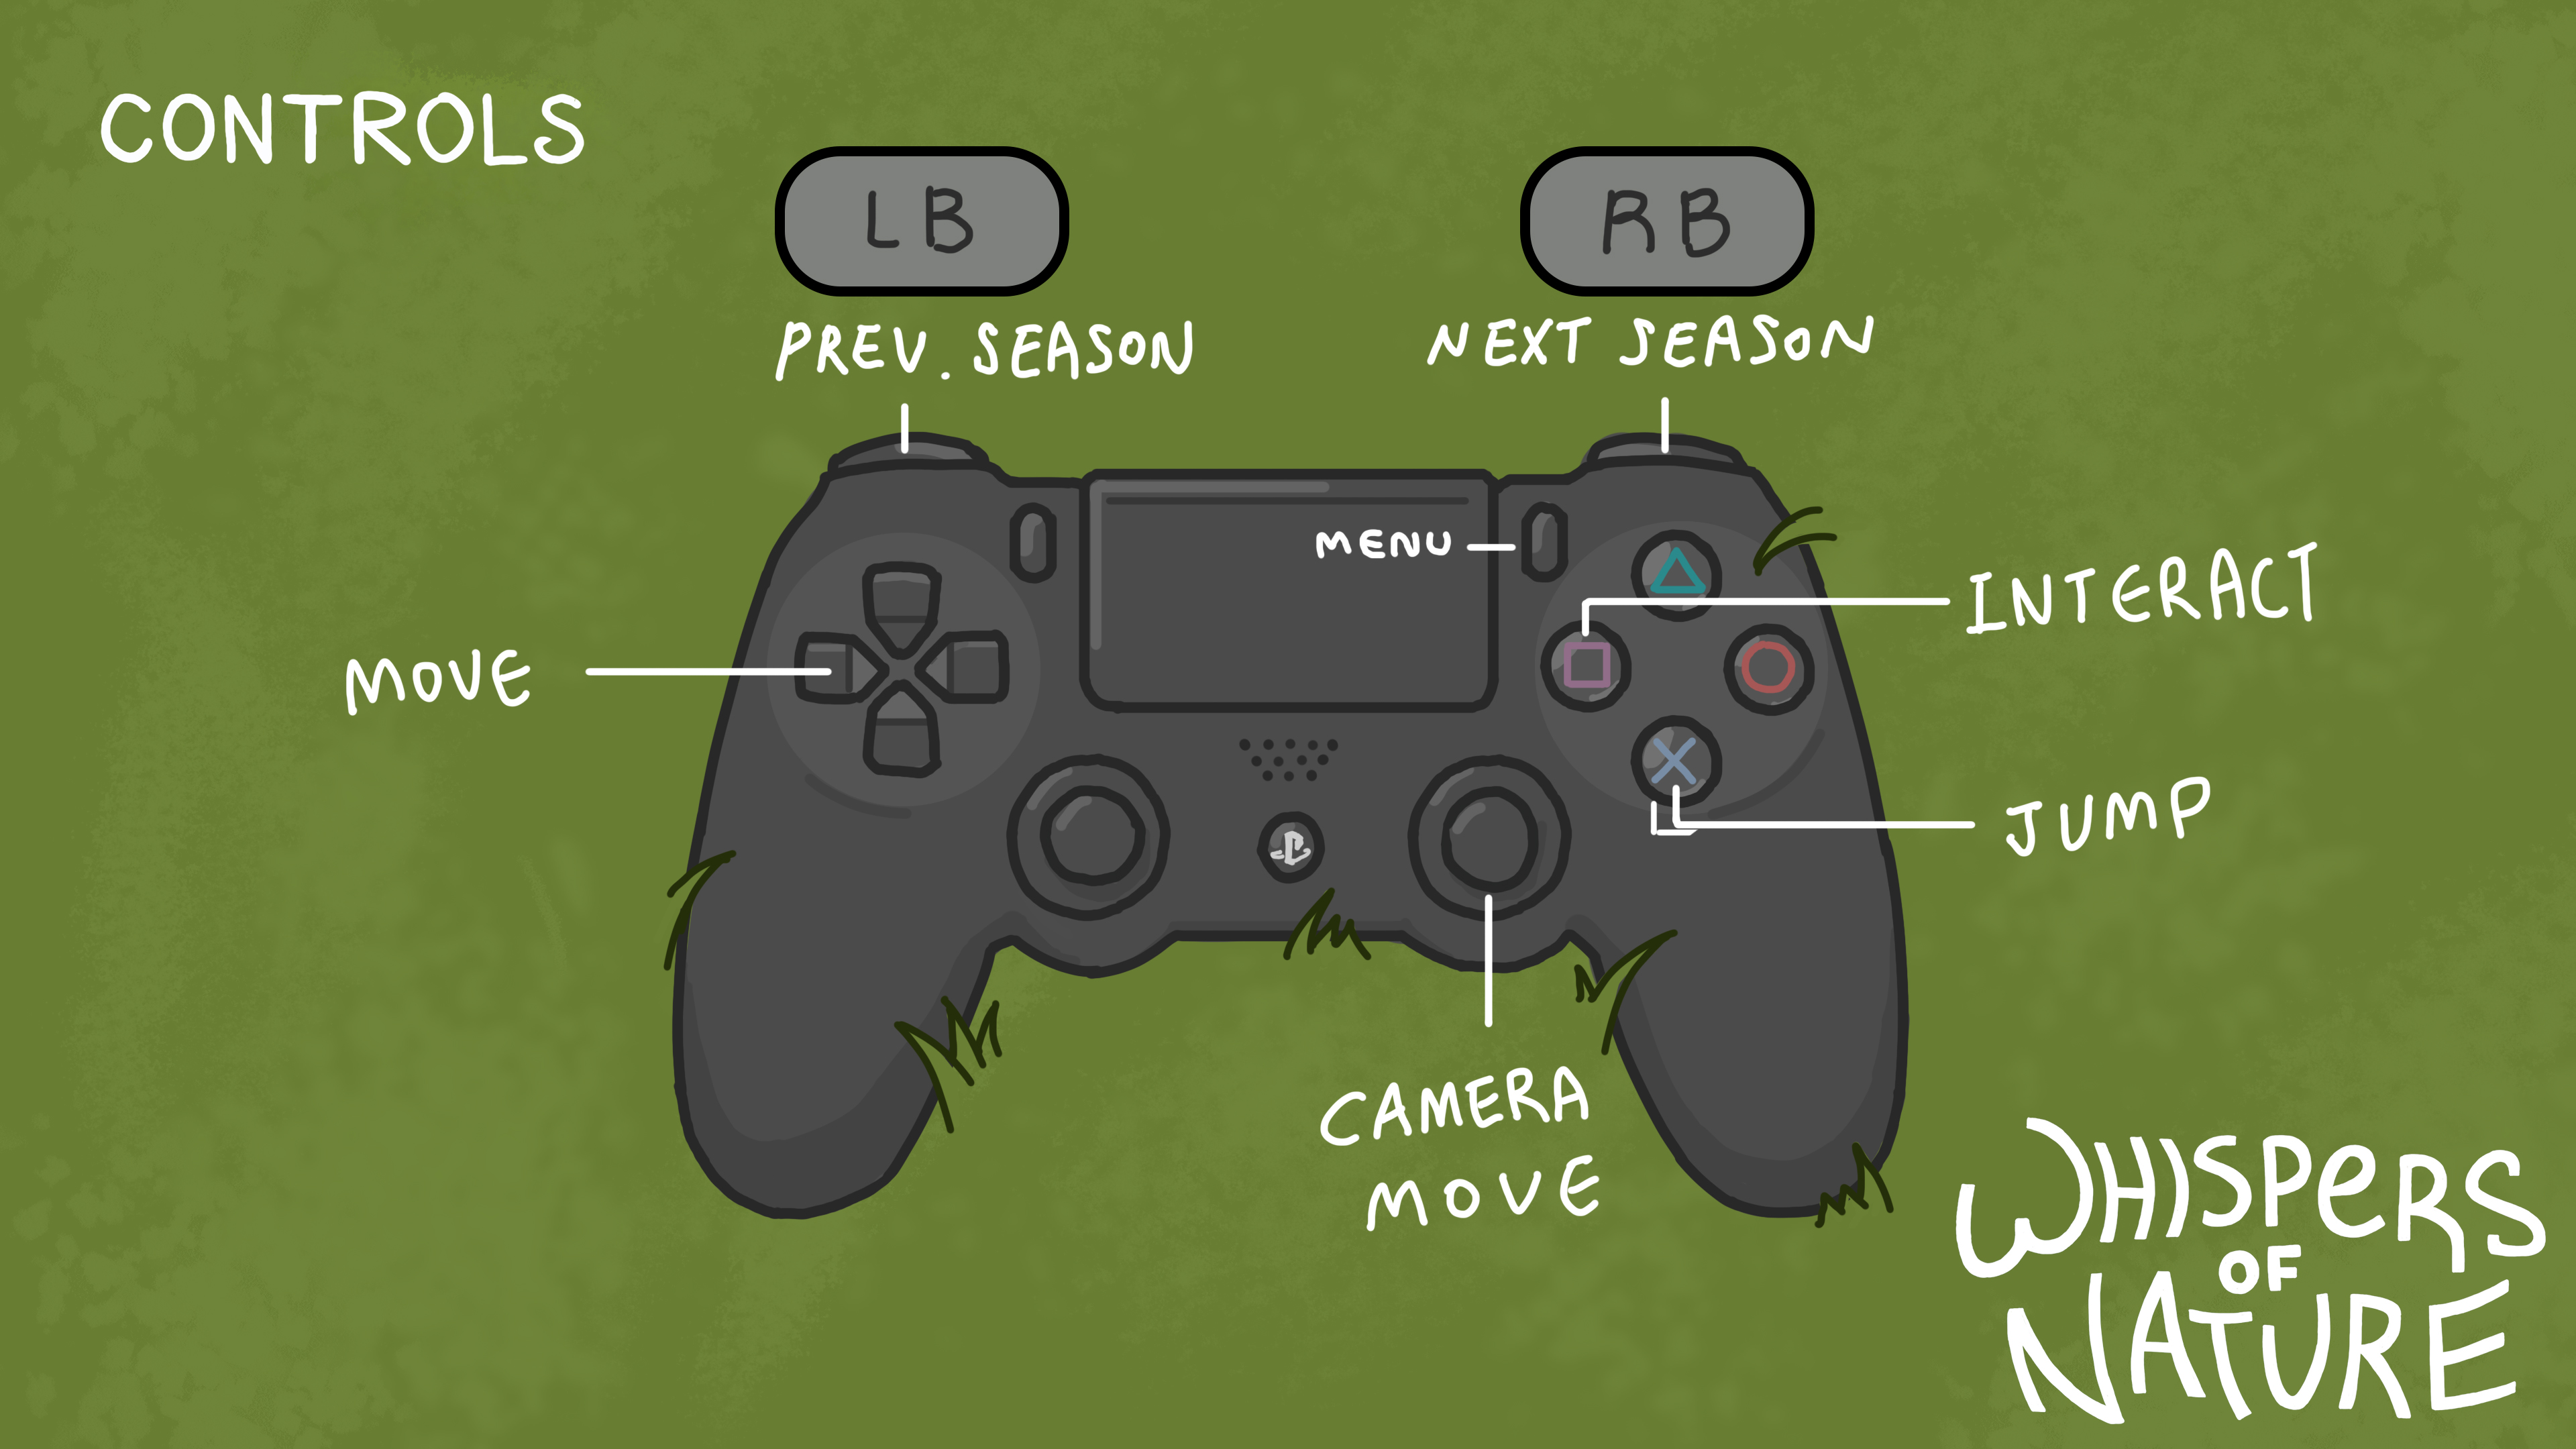 CONTROLS
LB
RB
PREV. SEASON
NEXT SEASON
MENU
INTERACT
MOVE
JUMP
CAMERA
MOVE
WHISPeRS
OF
NATURE